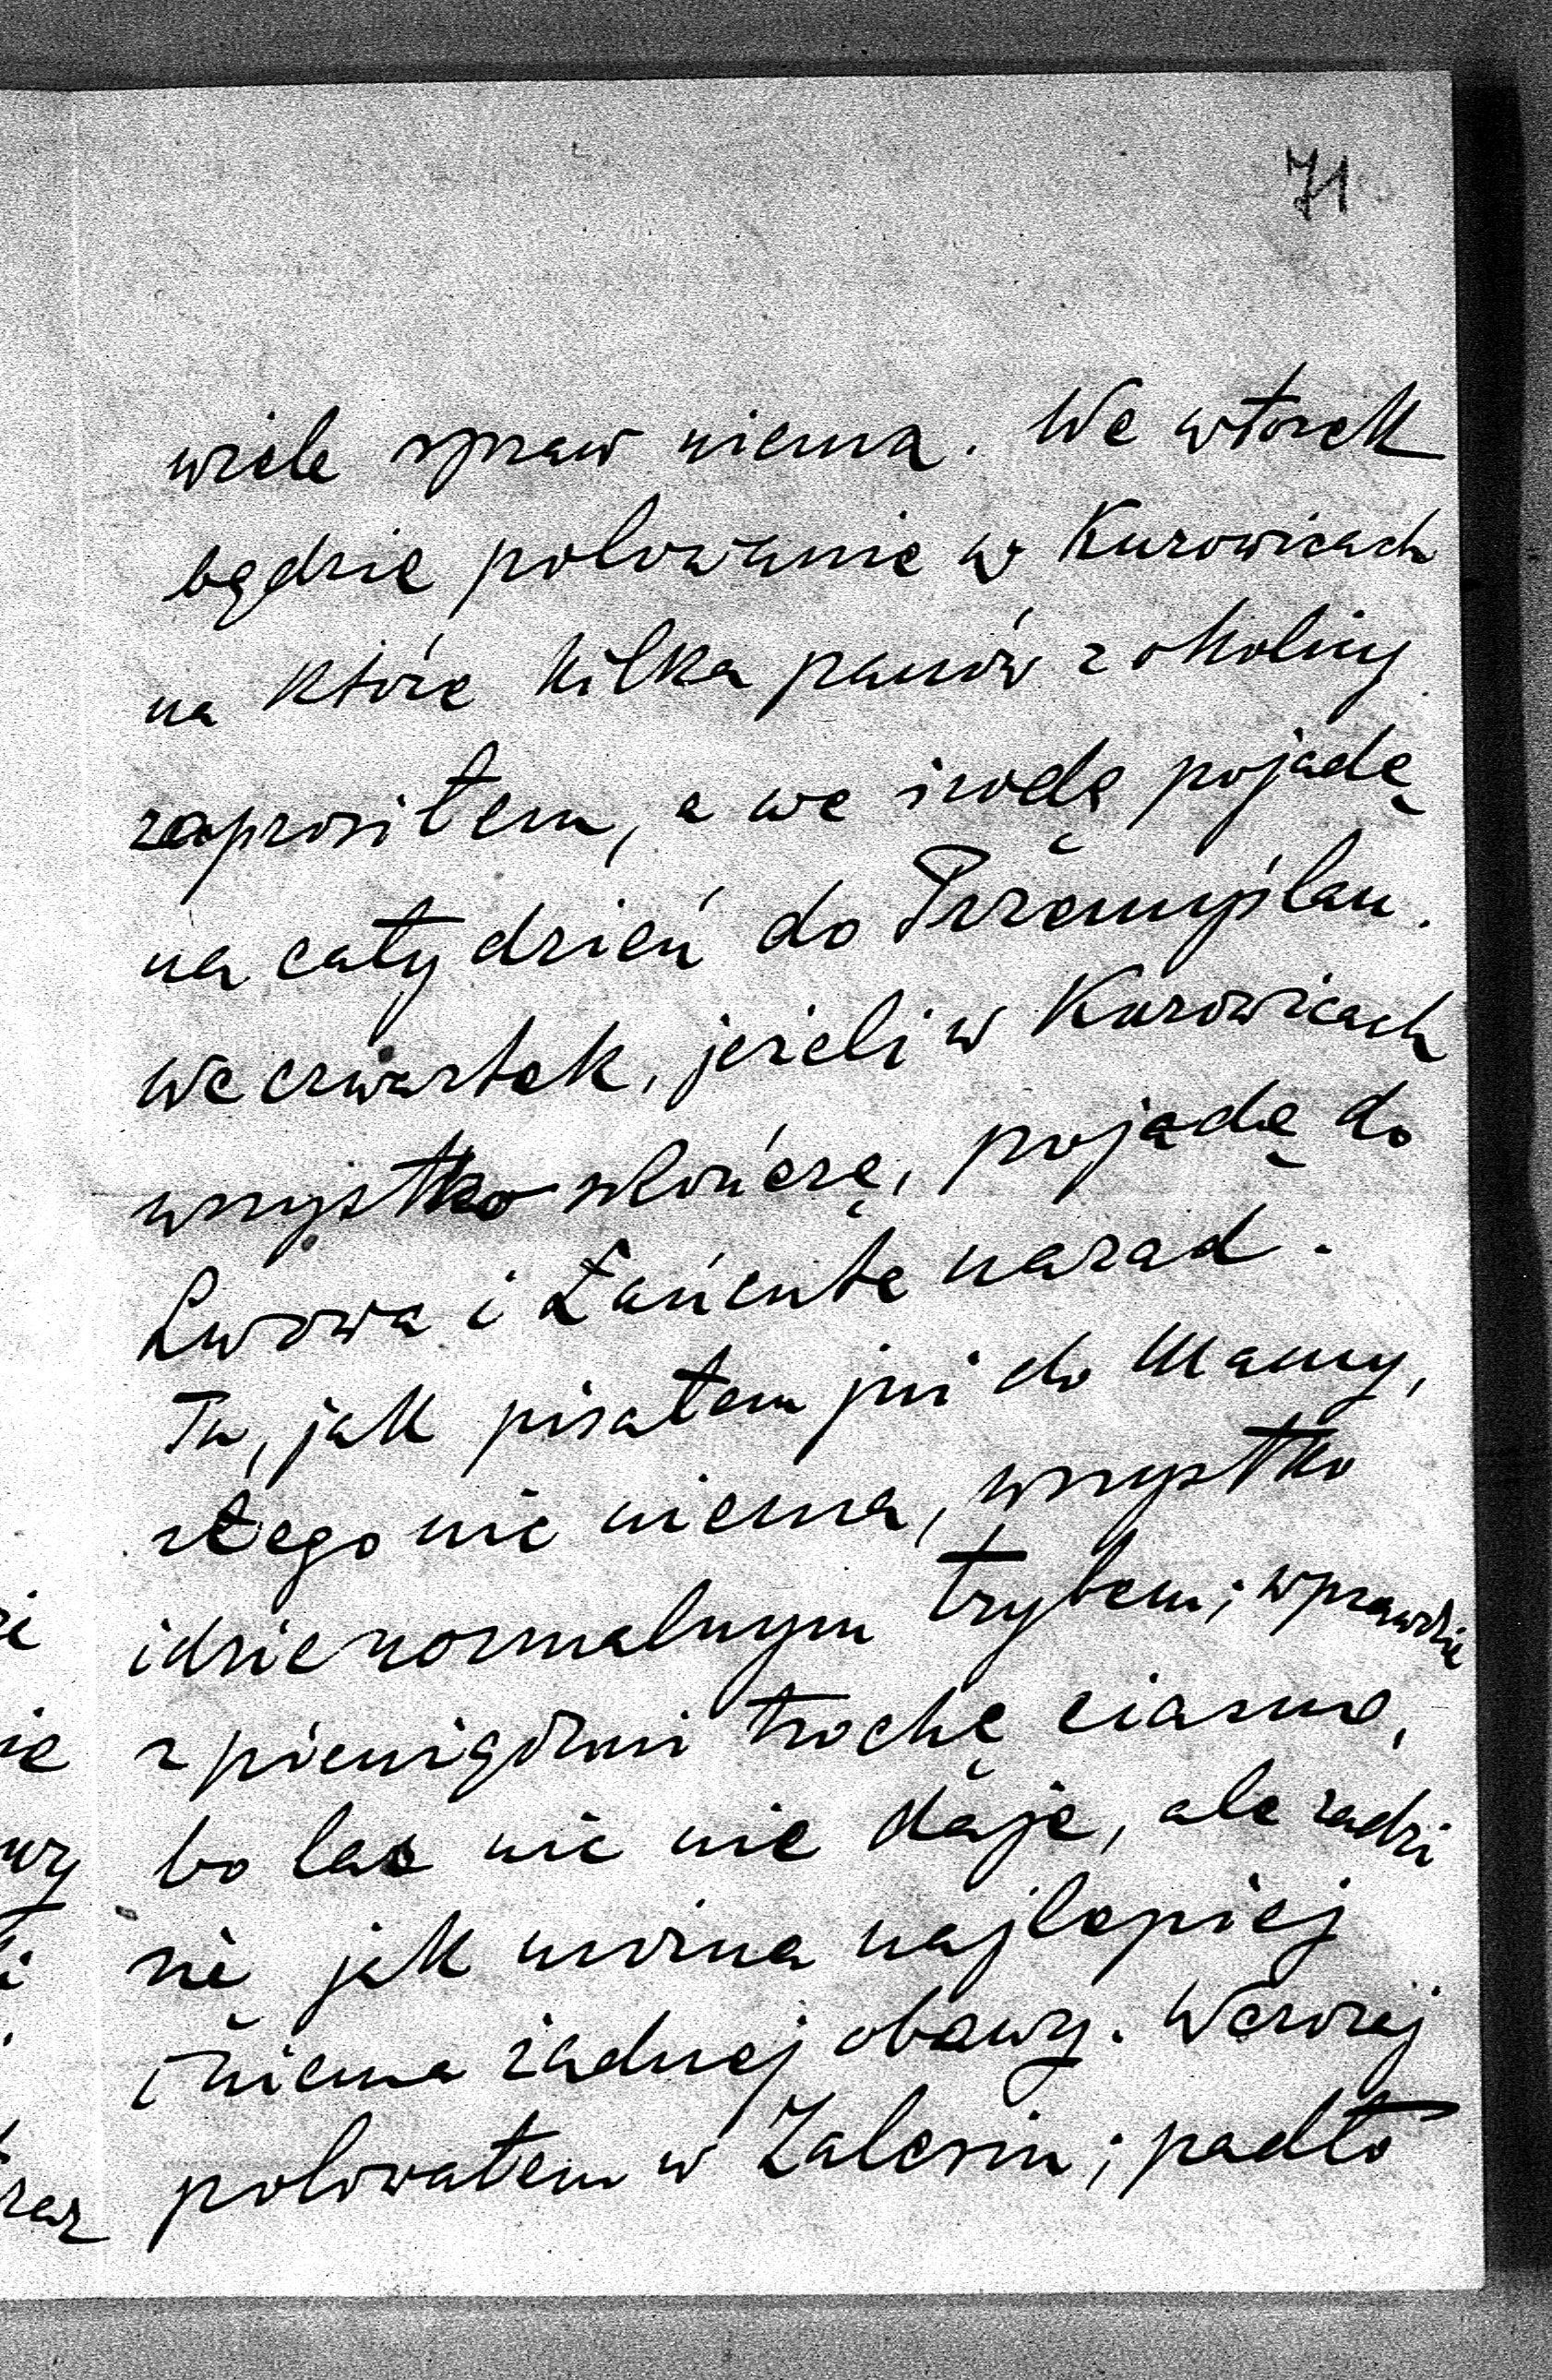 71
wiele spraw niema. We wtorek
będzie polowanie w Kurowicach
na które kilka panów z okolicy
zaprosiłem, a we środę pojadę
na cały dzień do Przemyślan.
We czwartek, jeżeli w Kurowicach
wszystko skończę, pojadę do
Lwowa i Łańcuta narad.
Tu, jak pisałem już do Mamy,
złego nic niema, wszystko
idzie normalnym trybem; wprawdzie
z pieniędzmi trochę ciasno,
bo las nic nie daje, ale radzi
się jak można najlepiej
i niema żadnej obawy. Wczoraj
polowałem w Zalesiu; padło